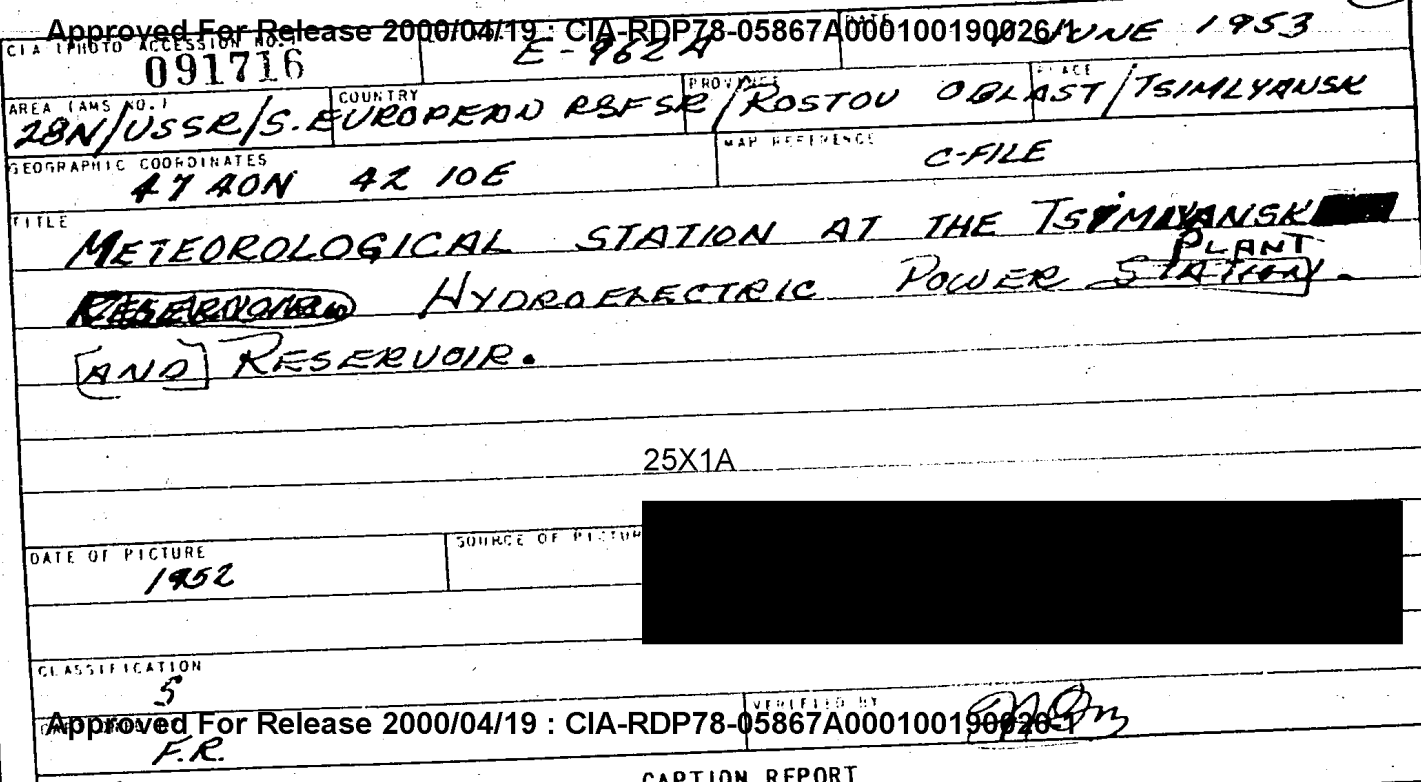 Approved For Release 2000/04/19 : CIA-RDP78-05867A000100190026-1
CIA (PHOTO ACCESSION NO.) DATE
091716 E-962A JUNE 1953
AREA (AMS NO.) COUNTRY PROVINCE PLACE
28N/USSR/S.EUROPEAN RSFSR/ROSTOV OBLAST/TSIMLYANSK
GEOGRAPHIC COORDINATES MAP REFERENCE
47 40N 42 10E C-FILE
TITLE
METEOROLOGICAL STATION AT THE TSIMLYANSK
PLANT
HYDROELECTRIC POWER STATION.
[AND] RESERVOIR.
25X1A
DATE OF PICTURE SOURCE OF PICTUR
1952
CLASSIFICATION
S
VERIFIED BY
Approved For Release 2000/04/19 : CIA-RDP78-05867A000100190026-1
F.R.
CAPTION REPORT